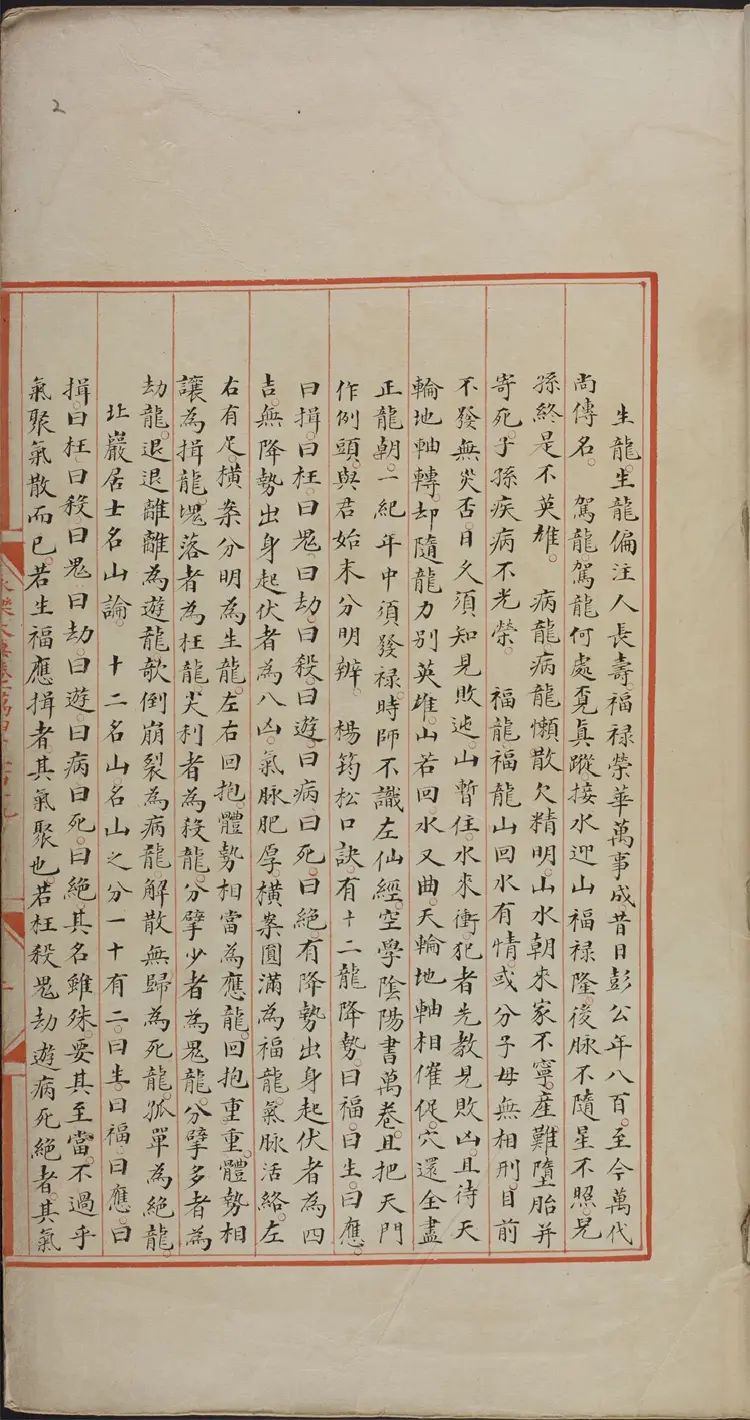 2
生龍。生龍偏注人長壽。福禄榮華萬事成。昔日彭公年八百。至今萬代
尚傳名。　駕龍。駕龍何處覔真蹤。接水迎山福禄隆。後脉不隨星不照。兒
孫終是不英雄。　病龍病龍懶散欠精明。山水朝來家不寧。產難墮胎并
寄死。子孫疾病不光榮。　福龍福龍山回水有情。或分子母無相刑。目前
不發無災否。日久須知見敗迍。山暫住。水來衝。犯者先教見敗凶。且待天
輪地軸轉。却隨龍力别英雄。山若回。水又曲。天輪地軸相催促。穴還全盡
正龍朝。一紀年中須發禄。時師不識左仙經。空學陰陽書萬卷。且把天門
作例頭。與君始末分明辨。　楊筠松口訣。有十二龍降勢。曰福。曰生。曰應。
曰揖。曰枉。曰鬼。曰劫。曰殺。曰遊。曰病曰死。曰絕有降勢出身起伏者為四
吉。無降勢出身起伏者為八凶。氣脉肥厚。橫案圓滿為福龍。氣脉活絡。左
右有足。橫案分明為生龍。左右回抱。體勢相當為應龍。回抱重重。體勢相
讓為揖龍。塊落者為枉龍。尖利者為殺龍。分擘少者為鬼龍。分擘多者為
劫龍。退退離離為遊龍欹倒崩裂為病龍。解散無歸為死龍。孤單為絕龍。
北巖居士名山論。　十二名山。名山之分一十有二。曰生。曰福。曰應。曰
揖。曰枉。曰殺。曰鬼。曰劫。曰遊。曰病曰死。曰絕。其名雖殊。要其至當。不過乎
氣聚氣散而已。若生福應揖者。其氣聚也。若枉殺鬼劫遊病死絕者。其氣